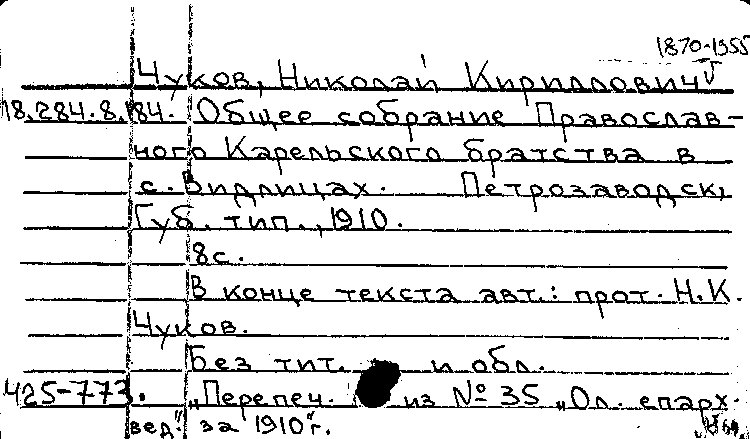 1870-1955
Чуков, Николай Кириллович
18.284.8.184. Общее собрание Православ-
ного Карельского братства в
с. Видлицах. Петрозаводск,
Губ. тип., 1910.
8с.
В конце текста авт.: прот. Н.К.
Чуков.
Без тит. л. и обл.
425-773. „Перепеч. из № 35 „Ол. епарх.
вед." за 1910"г.